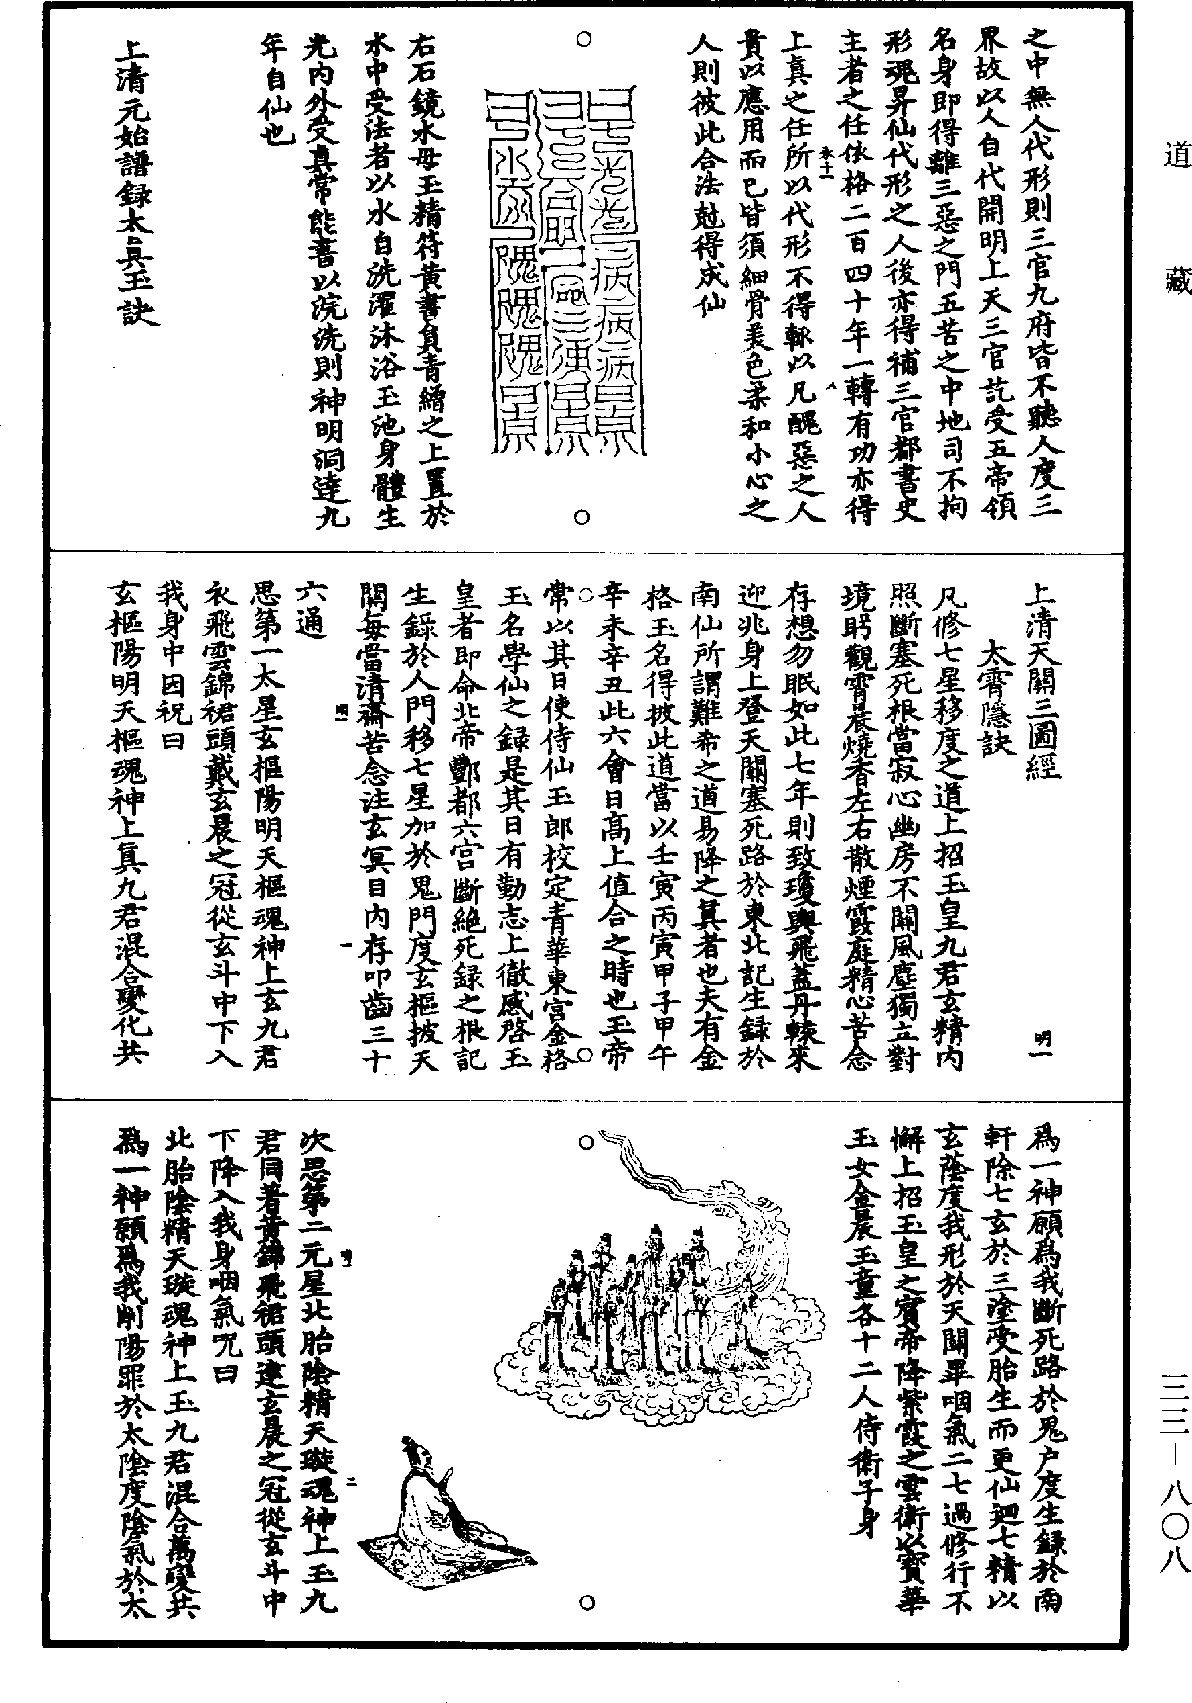 道藏
之中無人代形則三官九府皆不聽人度三
界故以人自代開明上天三官訖受五帝領
名身即得離三惡之門五苦之中地司不拘
形魂昇仙代形之人後亦得補三官都書史
主者之任依格二百四十年一轉有功亦得
上真之任所以代形不得輙以凡醜惡之人
貴以應用而已皆須細骨美色柔和小心之
人則彼此合法尅得成仙
右石鏡水母玉精符黄書負青繒之上置於
水中受法者以水自洗濯沐浴玉池身體生
光内外受真常能書以浣洗則神明洞達九
年自仙也
上清元始譜録太真玉訣
上清天關三圖經
明一
太霄隱訣
凡修七星移度之道上招玉皇九君玄精内
照斷塞死根當寂心幽房不關風塵獨立對
境眄觀霄衮燒香左右散煙霞庭精心苦念
存想勿眠如此七年則致瓊輿飛蓋丹軿來
迎兆身上登天關塞死路於東北記生録於
南仙所謂難希之道易降之真者也夫有金
格玉名得披此道當以壬寅丙寅甲子甲午
辛未辛丑此六會日高上值合之時也玉帝
常以其日使侍仙玉郎校定青華東宫金格
玉名學仙之録是其日有勤志上徹感啓玉
皇者即命北帝酆都六宫斷絶死録之根記
生錄於人門移七星加於鬼門度玄樞披天
關每當清齋苦念注玄冥目内存叩齒三十
明一
一
六通
思第一太星玄樞陽明天樞魂神上玄九君
衣飛雲錦裙頭戴玄晨之冠從玄斗中下入
我身中因祝曰
玄樞陽明天樞魂神上真九君混合變化共
爲一神願爲我斷死路於鬼户度生録於南
軒除七玄於三塗受胎生而更仙迴七精以
玄蔭度我形於天關畢咽氣二七過修行不
懈上招玉皇之賓帝降紫霞之雲衛以寶華
玉女金晨玉童各十二人侍衛子身
次思第二元星北胎陰精天璇魂神上玉九
二
君同著黄錦飛裙頭建玄晨之冠從玄斗中
下降入我身咽氣咒曰
北胎陰精天璇魂神上玉九君混合萬變共
爲一神願爲我削陽罪於太陰度陰氣於太
三三—八〇八